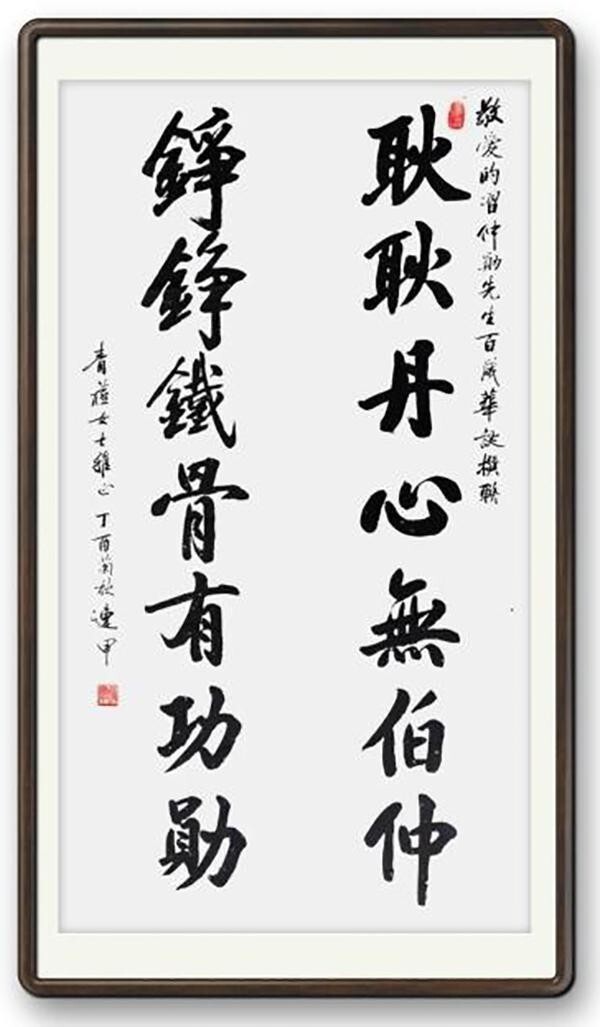 敬愛的習仲勛先生百歲華誕撰聯
耿耿丹心無伯仲
錚錚鐵骨有功勛
青蓝女士雅正 丁酉 連甲